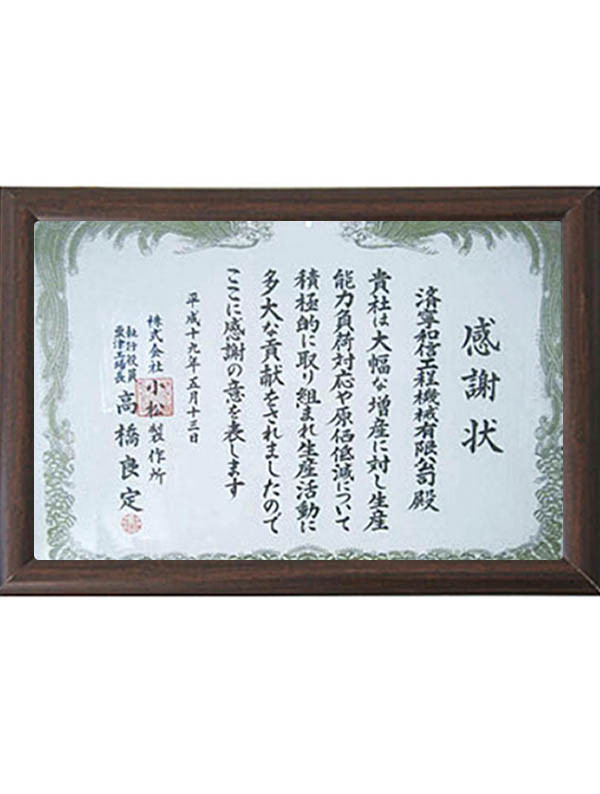 感謝状
済寧和信工程機械有限公司殿
貴社は大幅な増産に対し生産
能力負荷対応や原価低減について
積極的に取り組まれ生産活動に
多大な貢献をされましたので
ここに感謝の意を表します
平成十九年五月十三日
株式会社小松製作所
執行役員
粟津工場長
高橋良定